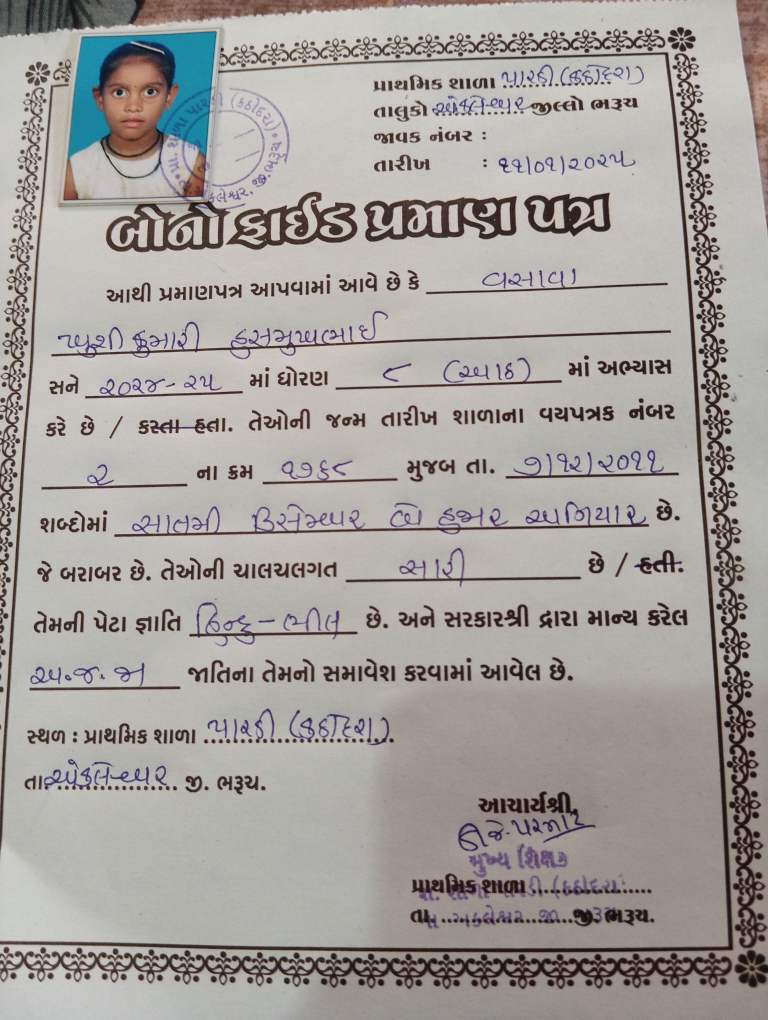 પ્રાથમિક શાળા પારડી (કઠોદરા)
તાલુકો અંકલેશ્વર જીલ્લો ભરૂચ
જાવક નંબર :
તારીખ : ૧૧/૦૧/૨૦૨૫
બોનોફાઈડ પ્રમાણ પત્ર
આથી પ્રમાણપત્ર આપવામાં આવે છે કે વસાવા
ખુશીકુમારી હસમુખભાઈ
સને ૨૦૨૪-૨૫ માં ધોરણ ૮ (આઠ) માં અભ્યાસ
કરે છે / કરતા હતા. તેઓની જન્મ તારીખ શાળાના વયપત્રક નંબર
૨ ના ક્રમ ૧૭૬૮ મુજબ તા. ૭/૧૨/૨૦૧૧
શબ્દોમાં સાતમી ડિસેમ્બર બે હજાર અગિયાર છે.
જે બરાબર છે. તેઓની ચાલચલગત સારી છે / હતી.
તેમની પેટા જ્ઞાતિ હિન્દુ-ભીલ છે. અને સરકારશ્રી દ્રારા માન્ય કરેલ
અ.જ.જા જાતિના તેમનો સમાવેશ કરવામાં આવેલ છે.
સ્થળ : પ્રાથમિક શાળા પારડી (કઠોદરા)
તા. અંકલેશ્વર જી. ભરૂચ.
આચાર્યશ્રી,
મુખ્ય શિક્ષક
પ્રાથમિક શાળા
તા. જી. ભરૂચ.